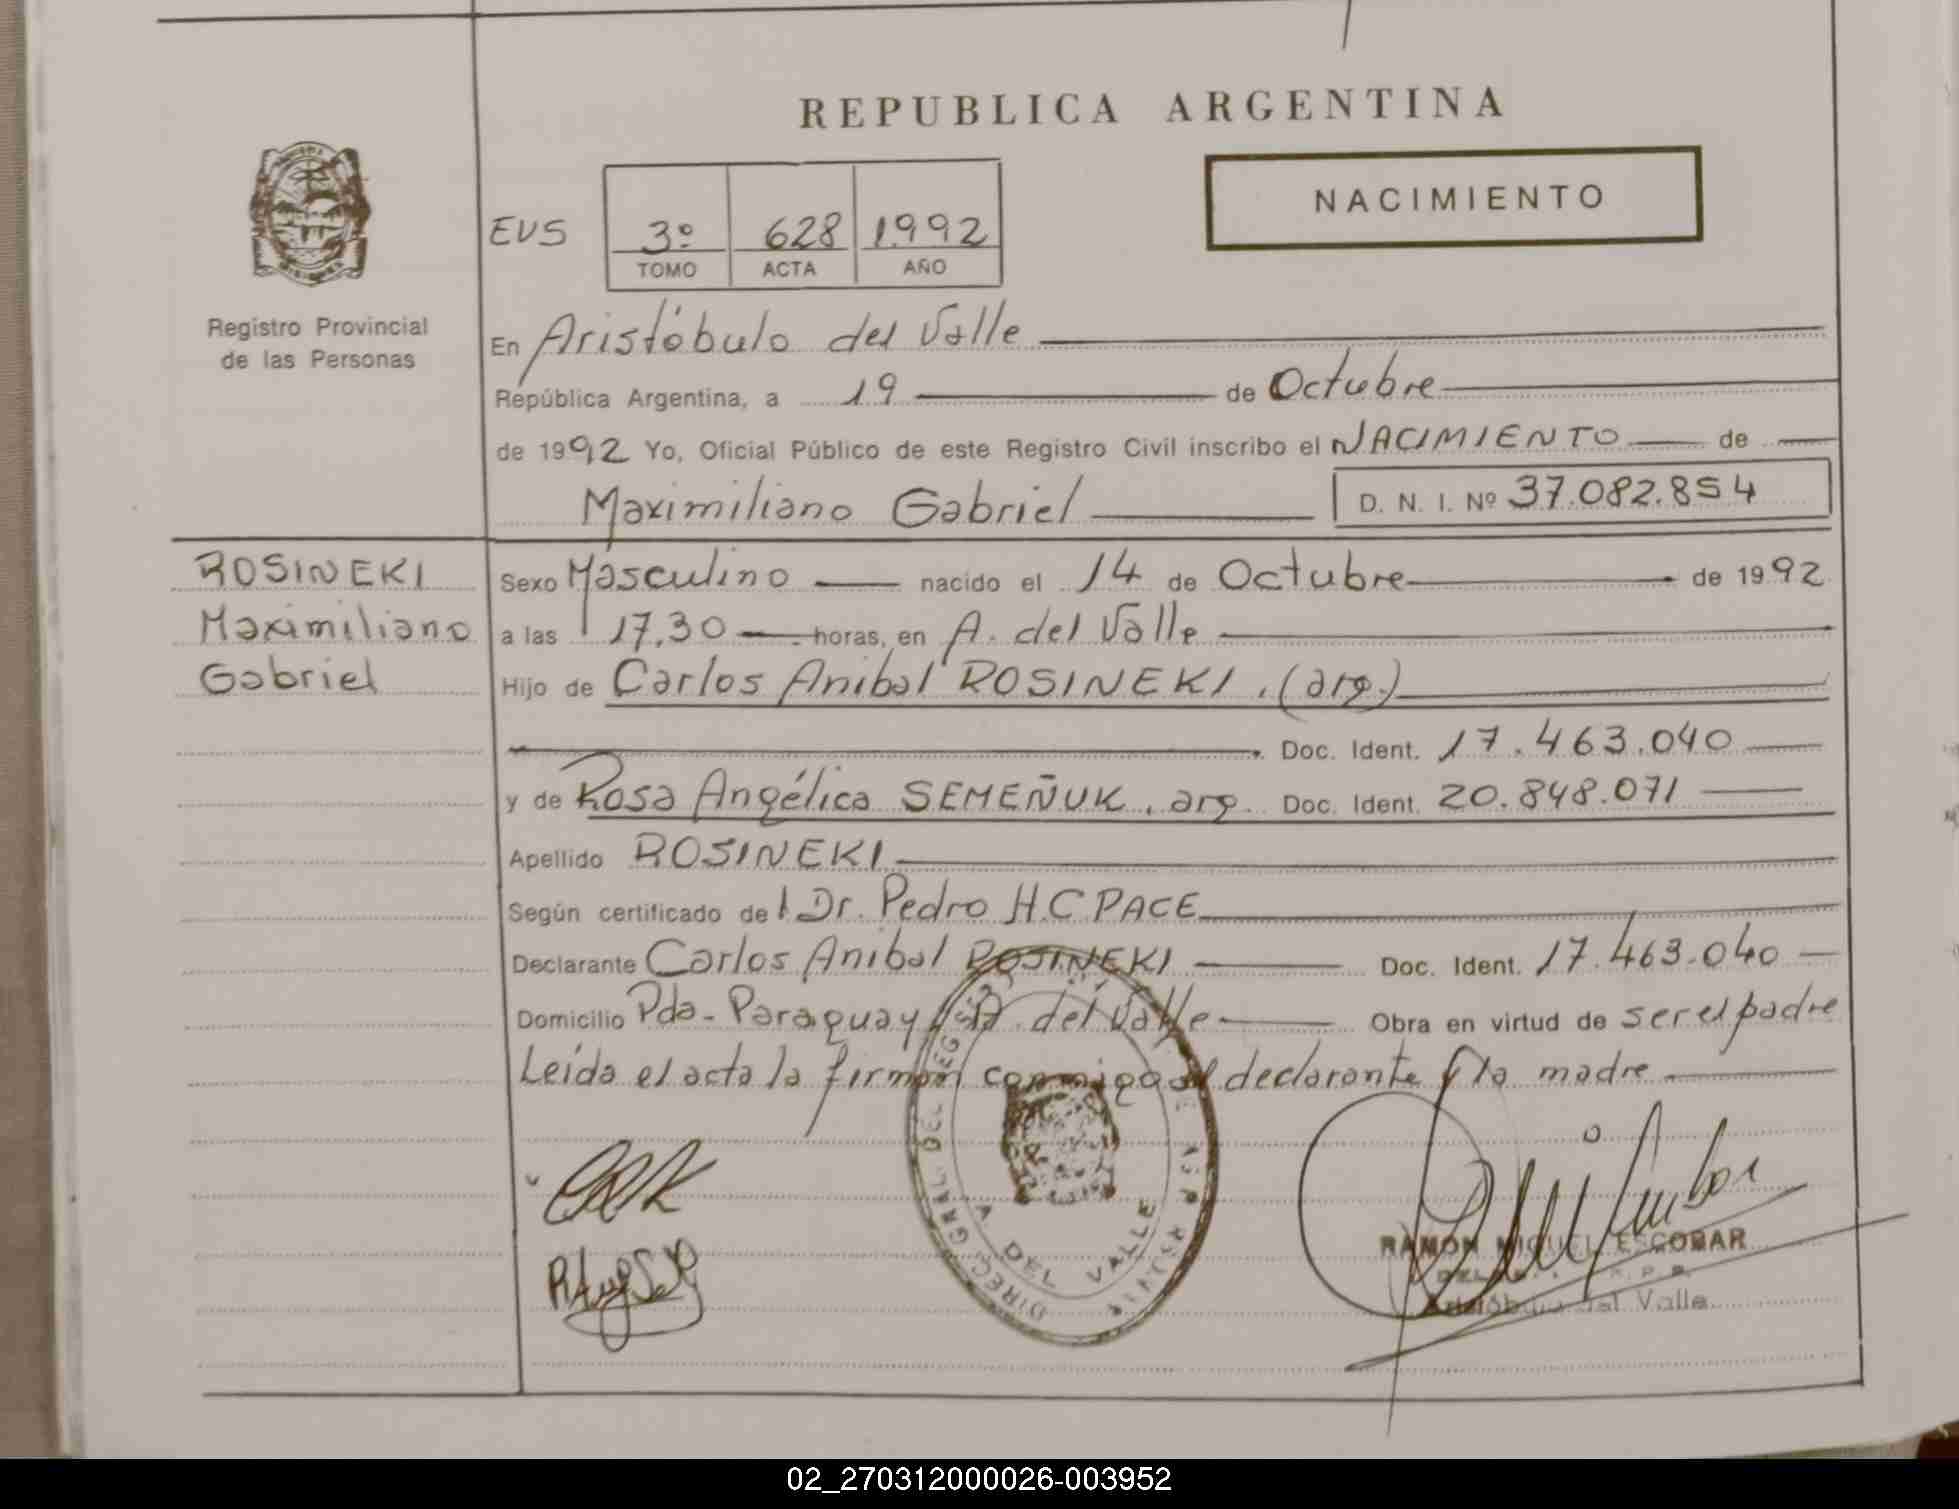 REPUBLICA ARGENTINA
NACIMIENTO
EUS
3º 628 1992
TOMO ACTA AÑO
Registro Provincial
de las Personas
En Aristóbulo del Valle
República Argentina, a 19 de Octubre
de 1992 Yo, Oficial Público de este Registro Civil inscribo el NACIMIENTO de
Maximiliano Gabriel D. N. I. Nº 37.082.854
ROSINEKI
Maximiliano
Gabriel
Sexo Masculino nacido el 14 de Octubre de 1992
a las 17,30 horas, en A. del Valle
Hijo de Carlos Anibal ROSINEKI. (arg.)
Doc. Ident. 17.463.040
y de Rosa Angélica SEMEÑUK, arg. Doc. Ident. 20.848.071
Apellido ROSINEKI
Según certificado del Dr. Pedro H.C PACE
Declarante Carlos Anibal ROSINEKI Doc. Ident. 17.463.040
Domicilio Pda. Paraguay, A. del Valle Obra en virtud de ser el padre
Leída el acta la firman conmigo el declarante y la madre
DIREC. GRAL. DEL REGISTRO
A DEL VALLE
RAMON MIGUEL ESCOBAR
Aristóbulo del Valle
02_270312000026-003952